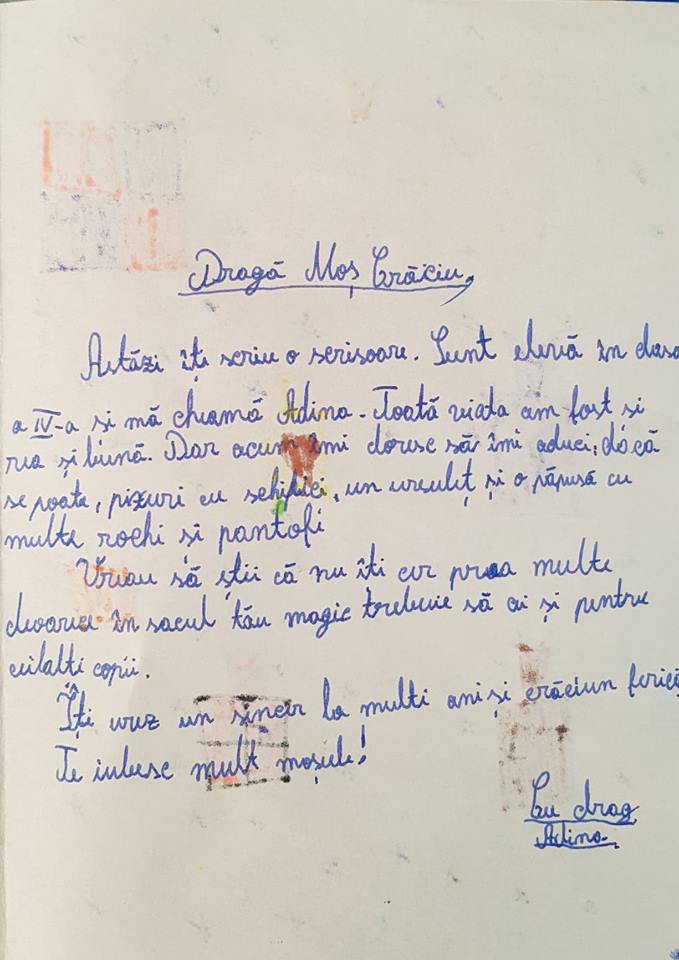 Dragă Moș Crăciu,
Astăzi îți scriu o scrisoare. Sunt elevă în clasa
a IV-a si mă chiamă Adina. Toată viata am fost si
rea și bună. Dar acum îmi doresc să îmi aduci, dacă
se poate, pixuri cu schipici, un ursuleț și o păpusă cu
multe rochi și pantofi
Vreau să știi că nu îti cer prea multe
deoarece în sacul tău magic trebuie să ai și pentru
ceilalti copii.
Îți urez un sincer la multi ani și crăciun fericit
Te iubesc mult moșule!
Cu drag
Adina.